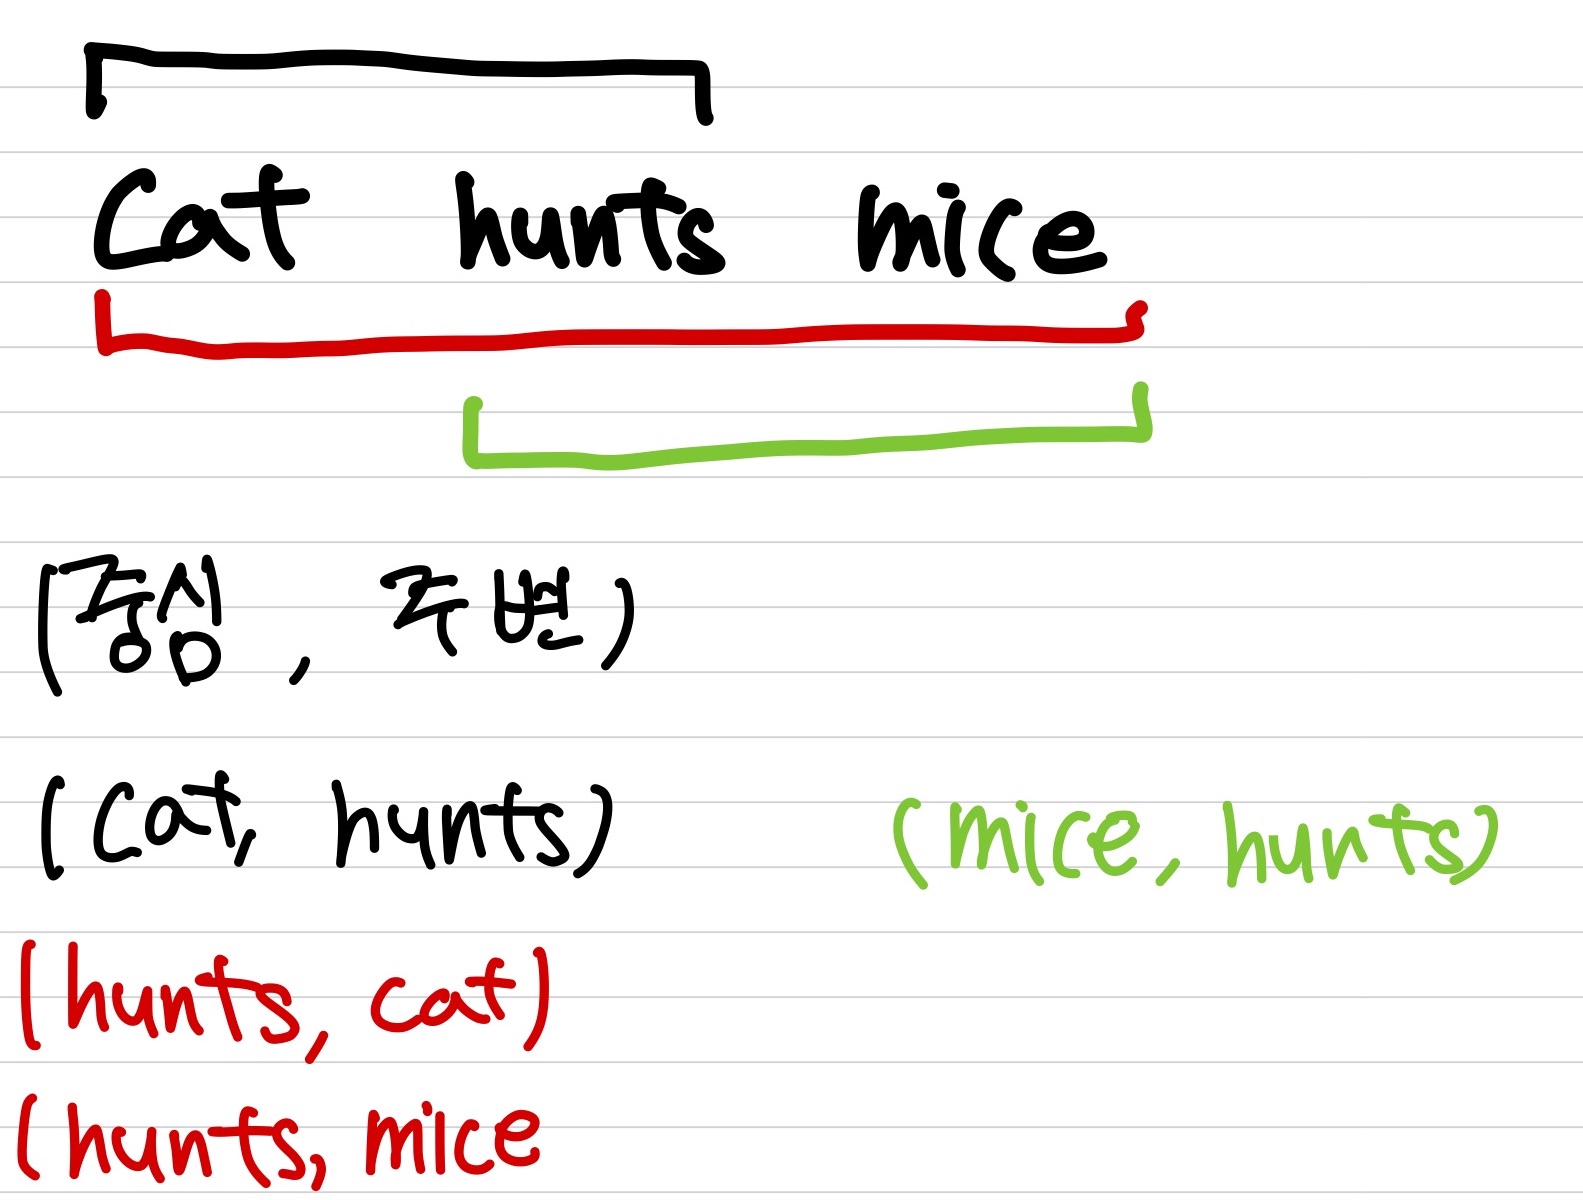 Cat hunts mice
(중심, 주변)
(cat, hunts)
(mice, hunts)
(hunts, cat)
(hunts, mice